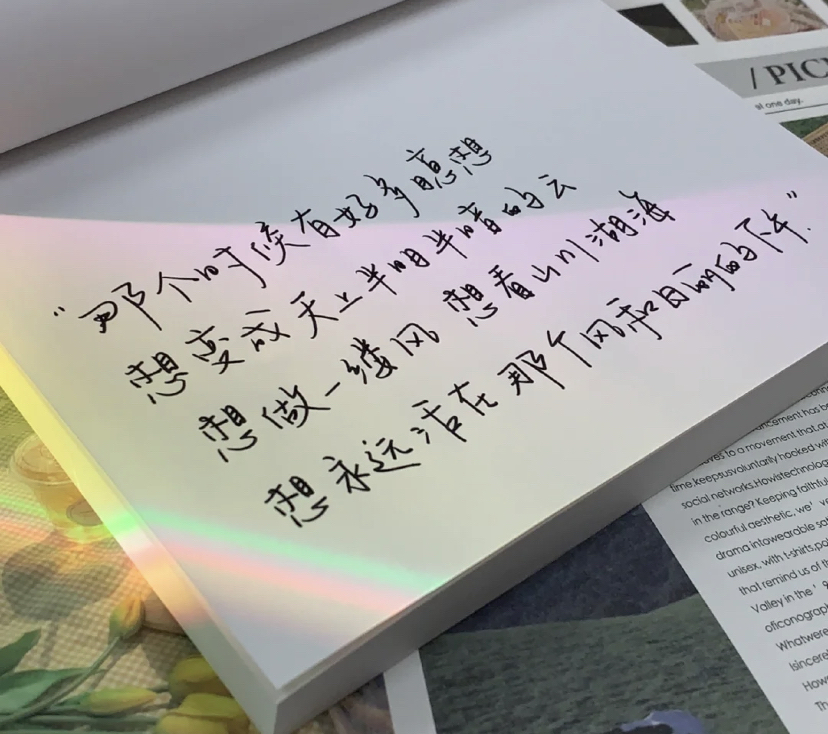 “那个时候有好多臆想
想变成天上半明半暗的云
想做一缕风 想看山川湖海
想永远活在那个风和日丽的下午”
/ PIC
at one day.
cement has b
es to a movement that.at
time.keepsusvoluntarily hooked wit
social networks.Howistechnolog
in the range? Keeping faithful
colourful aesthetic, we' v
drama intowearable sa
unisex, with t-shirts,po
that remind us of th
Valley in the '
oficonograp
Whatwere
Isincerel
How
Th